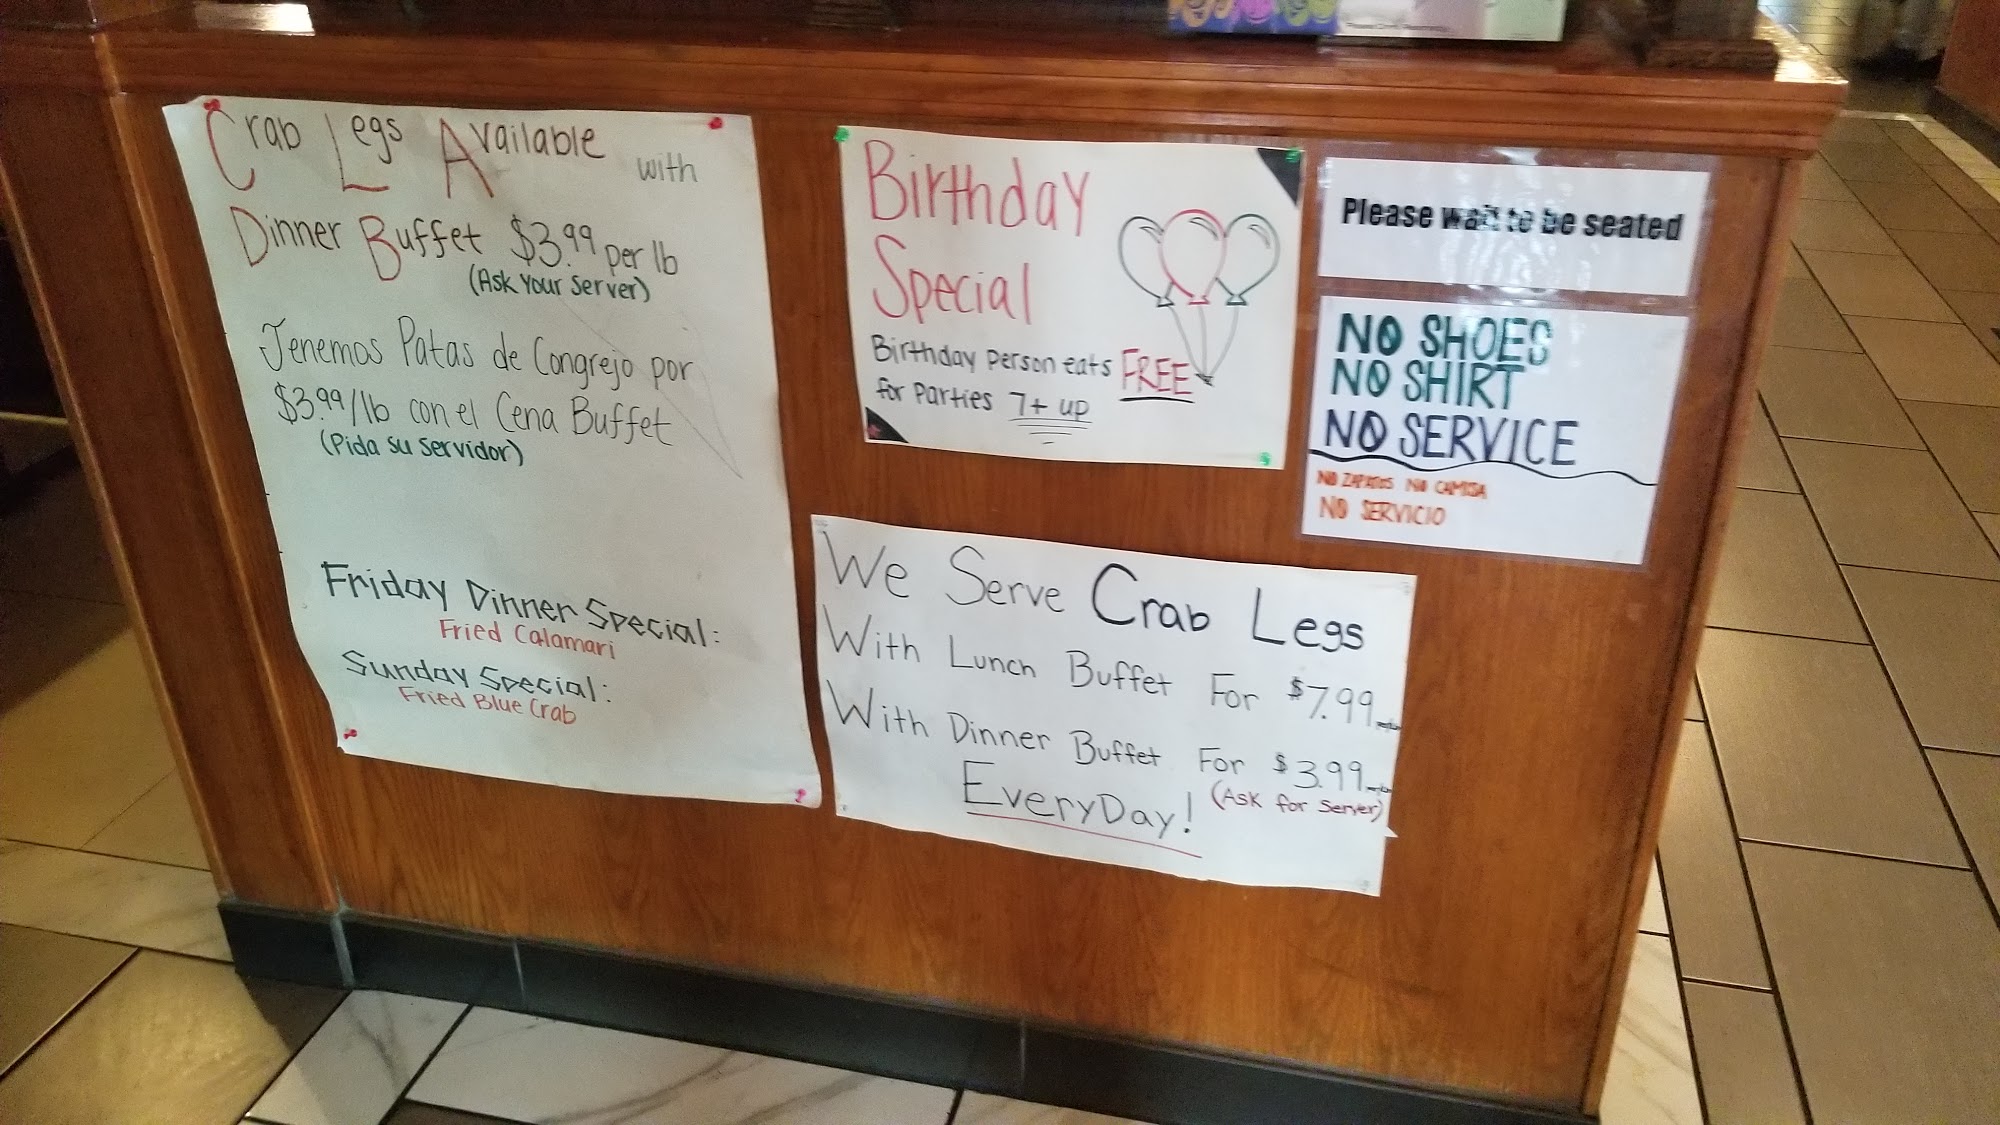 Crab Legs Available with
Dinner Buffet $3.99 per lb
(Ask Your Server)
Tenemos Patas de Congrejo por
$3.99/lb con el Cena Buffet
(Pida su servidor)
Friday Dinner Special:
Fried Calamari
Sunday Special:
Fried Blue Crab
Birthday
Special
Birthday person eats FREE
for Parties 7+ up
Please wait to be seated
NO SHOES
NO SHIRT
NO SERVICE
NO ZAPATOS NO CAMISA
NO SERVICIO
We Serve Crab Legs
With Lunch Buffet For $7.99
With Dinner Buffet For $3.99
(Ask for Server)
EveryDay!